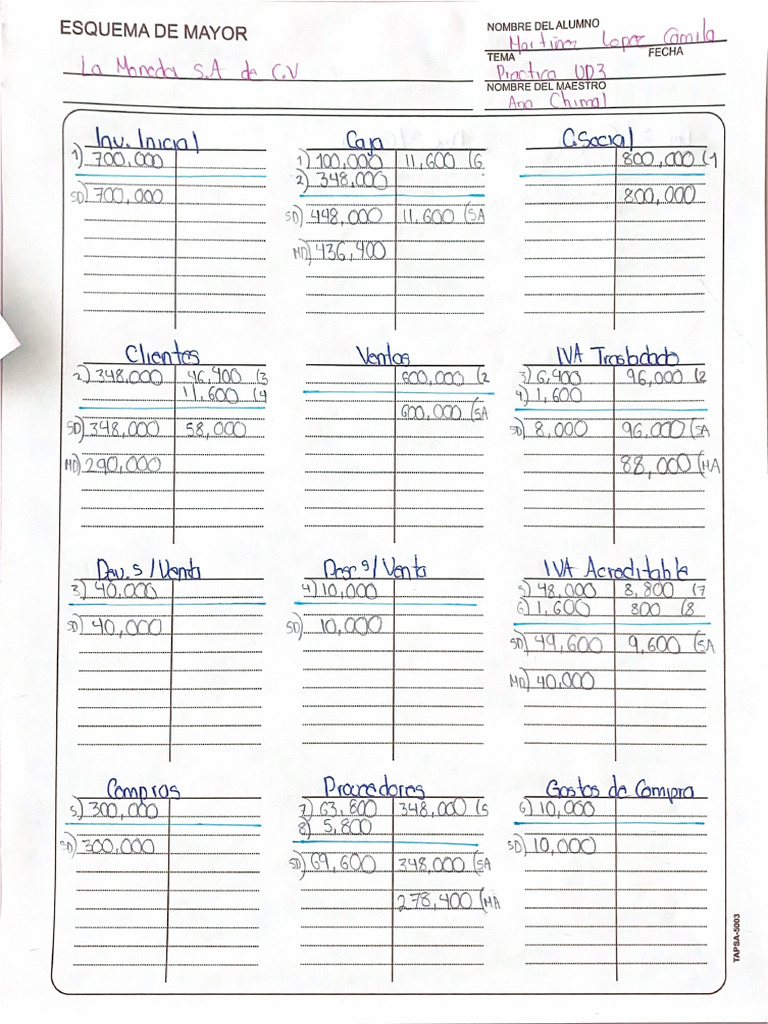 ESQUEMA DE MAYOR
NOMBRE DEL ALUMNO
Martinez Lopez Camila
TEMA
FECHA
La Moneda S.A de C.V
Practica UD3
NOMBRE DEL MAESTRO
Ana Chimal
Inv. Inicial
1) 700,000
SD) 700,000
Caja
1) 100,000 11,600 (6
2) 348,000
SD) 448,000 11.600 (SA
MD) 436,400
C.Social
800,000 (1
800,000
Clientes
2) 348,000 46,400 (3
11,600 (4
SD) 348,000 58,000
MD) 290,000
Ventas
600,000 (2
600,000 (SA
IVA Trasladado
3) 6,400 96,000 (2
4) 1,600
SD) 8,000 96,000 (SA
88,000 (MA
Dev. s/Venta
3) 40,000
SD) 40,000
Desc s/Venta
4) 10,000
SD) 10,000
IVA Acreditable
5) 48,000 8,800 (7
6) 1,600 800 (8
SD) 49,600 9,600 (SA
MD) 40,000
Compras
5) 300,000
SD) 300,000
Proveedores
7) 63,800 348,000 (5
8) 5,800
SD) 69,600 348,000 (SA
278,400 (MA
Gastos de Compra
6) 10,000
SD) 10,000
TAPSA-5003